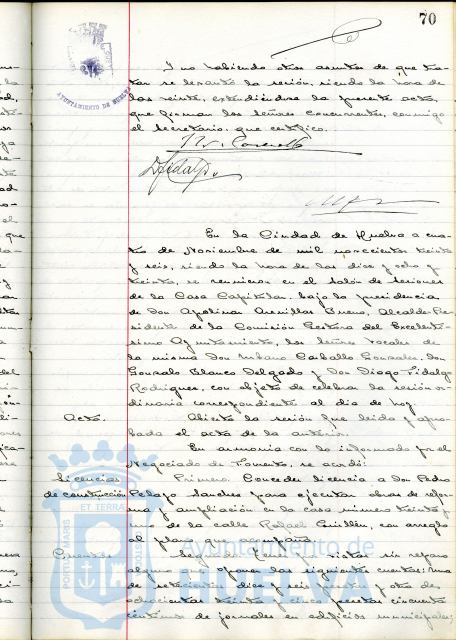 70
AYUNTAMIENTO DE HUELVA
Y no habiendo otros asuntos de que tra-
tar se levantó la sesión, siendo la hora de
las veinte, extendiéndose la presente acta,
que firman los señores concurrentes, conmigo
el Secretario, que certifico.
D Fidalgo
En la Ciudad de Huelva a cua-
tro de Noviembre de mil novecientos treinta
y seis, siendo la hora de las diez y ocho y
treinta, se reunieron en el salón de sesiones
de la Casa Capitular, bajo la presidencia
de Don Apolinar Arenillas Bueno, Alcalde-Pre-
sidente de la Comisión Gestora del Excelentí-
simo Ayuntamiento, los señores Vocales de
la misma Don Urbano Carballo González, don
Gonzalo Blanco Delgado y Don Diego Fidalgo
Rodríguez, con objeto de celebrar la sesión or-
dinaria correspondiente al día de hoy.
Acta. Abierta la sesión fue leída y apro-
bada el acta de la anterior.
En armonía con lo informado por el
Negociado de Fomento, se acordó:
Licencias Primero. Conceder licencia a Don Pedro
de construcción Pelayo Sánchez para ejecutar obras de refor-
ma y ampliación en la casa número treinta y
uno de la calle Rafael Guillén, con arreglo
al plano que acompaña.
Cuentas
alguno y aprobar las siguientes cuentas: una
de setecientas diez y seis pesetas y otra de
ochocientas treinta y cinco pesetas cincuenta
céntimos de jornales en edificios municipales;
PORTUS MARIS
ET TERRAE
CUSTODIA
Ayuntamiento de
HUELVA